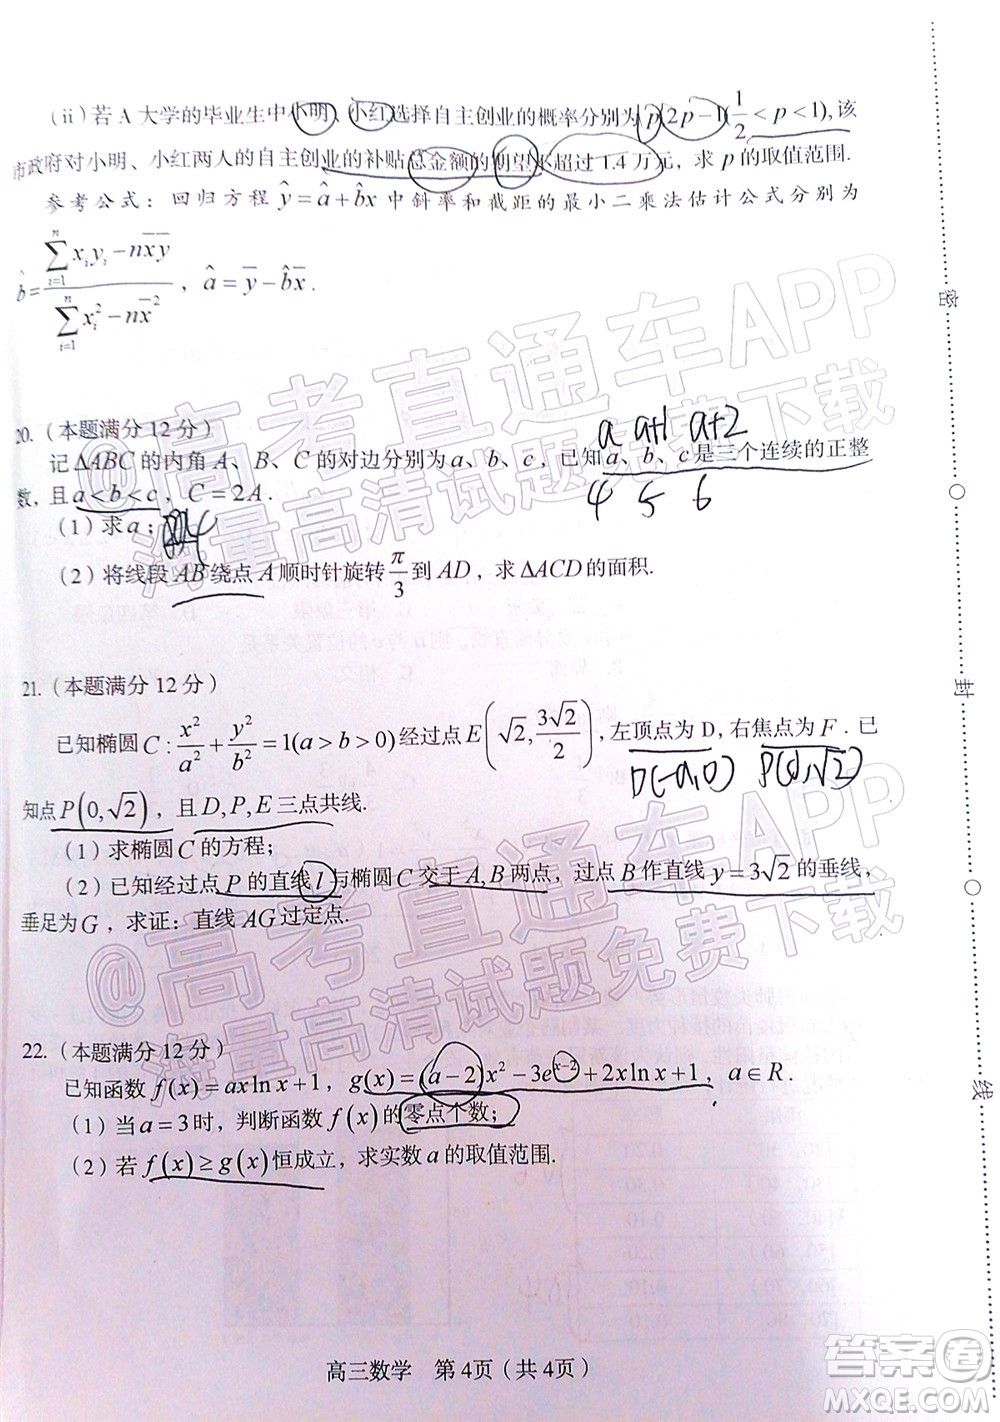 (ii)若A大学的毕业生中小明、小红选择自主创业的概率分别为p,2p−1(1/2<p<1),该
市政府对小明、小红两人的自主创业的补贴总金额的期望不超过1.4万元，求p的取值范围.
参考公式：回归方程ŷ=â+b̂x中斜率和截距的最小二乘法估计公式分别为
b̂=(∑_{i=1}^{n} x_i y_i − n x̄ȳ)/(∑_{i=1}^{n} x_i² − n x̄²)，â=ȳ−b̂x̄.
20.（本题满分12分）
a a+1 a+2
记ΔABC的内角A、B、C的对边分别为a、b、c，已知a、b、c是三个连续的正整
数，且a<b<c，C=2A.
4 5 6
（1）求a；
4
（2）将线段AB绕点A顺时针旋转π/3到AD，求ΔACD的面积.
21.（本题满分12分）
已知椭圆C:x²/a²+y²/b²=1(a>b>0)经过点E(√2,3√2/2)，左顶点为D,右焦点为F.已
D(-a,0)
知点P(0,√2)，且D,P,E三点共线.
（1）求椭圆C的方程；
（2）已知经过点P的直线l与椭圆C交于A,B两点，过点B作直线y=3√2的垂线，
垂足为G，求证：直线AG过定点.
22.（本题满分12分）
已知函数f(x)=axlnx+1，g(x)=(a−2)x²−3e^{x−2}+2xlnx+1，a∈R.
（1）当a=3时，判断函数f(x)的零点个数；
（2）若f(x)≥g(x)恒成立，求实数a的取值范围.
高三数学 第4页（共4页）
密
封
线
@高考直通车APP
海量高清试题免费下载
@高考直通车APP
海量高清试题免费下载
答案圈
MXQE.COM